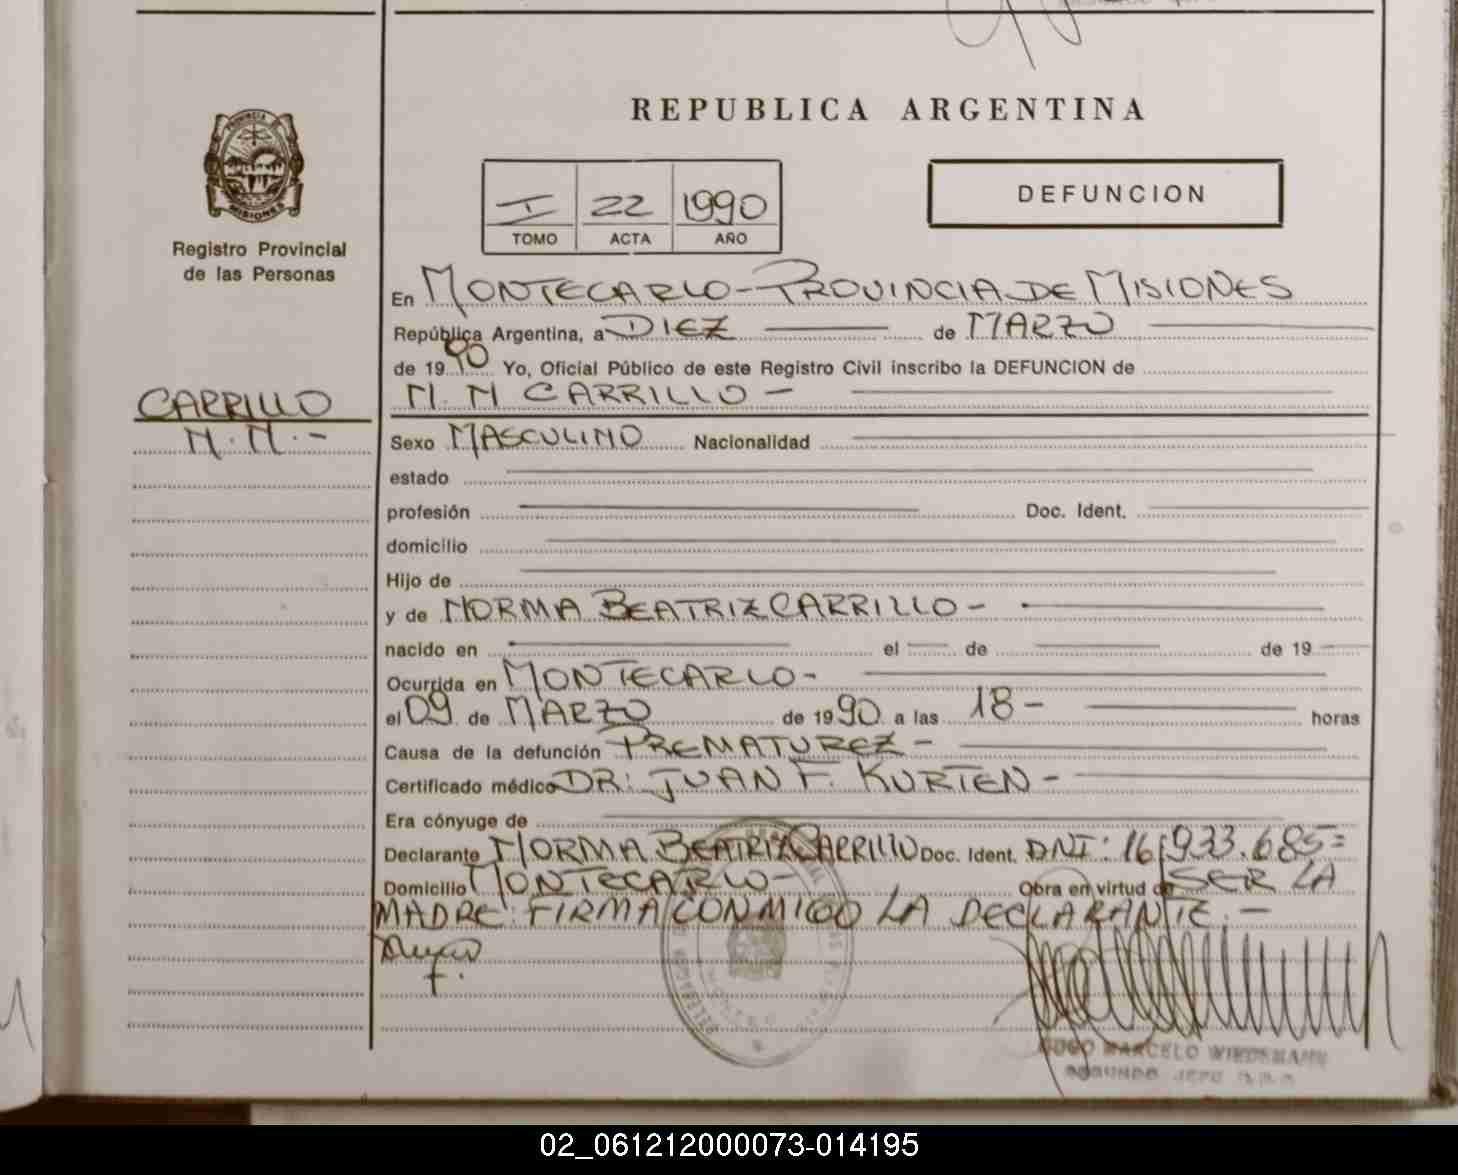 REPUBLICA ARGENTINA
PROVINCIA DE
MISIONES
Registro Provincial
de las Personas
I 22 1990
TOMO ACTA AÑO
DEFUNCION
En MONTECARLO - PROVINCIA DE MISIONES
República Argentina, a DIEZ de MARZO
de 1990 Yo, Oficial Público de este Registro Civil inscribo la DEFUNCION de
N. N CARRILLO -
CARRILLO
N. N. -
Sexo MASCULINO Nacionalidad
estado
profesión Doc. Ident.
domicilio
Hijo de
y de NORMA BEATRIZ CARRILLO -
nacido en el de de 19
Ocurrida en MONTECARLO -
el 09 de MARZO de 1990 a las 18 - horas
Causa de la defunción PREMATUREZ -
Certificado médico DR: JUAN F. KURTEN -
Era cónyuge de
Declarante NORMA BEATRIZ CARRILLO Doc. Ident. DNI: 16.933.685=
Domicilio MONTECARLO - Obra en virtud de SER LA
MADRE: FIRMA CONMIGO LA DECLARANTE. -
HUGO MARCELO WIEDEMANN
SEGUNDO JEFE
02_061212000073-014195